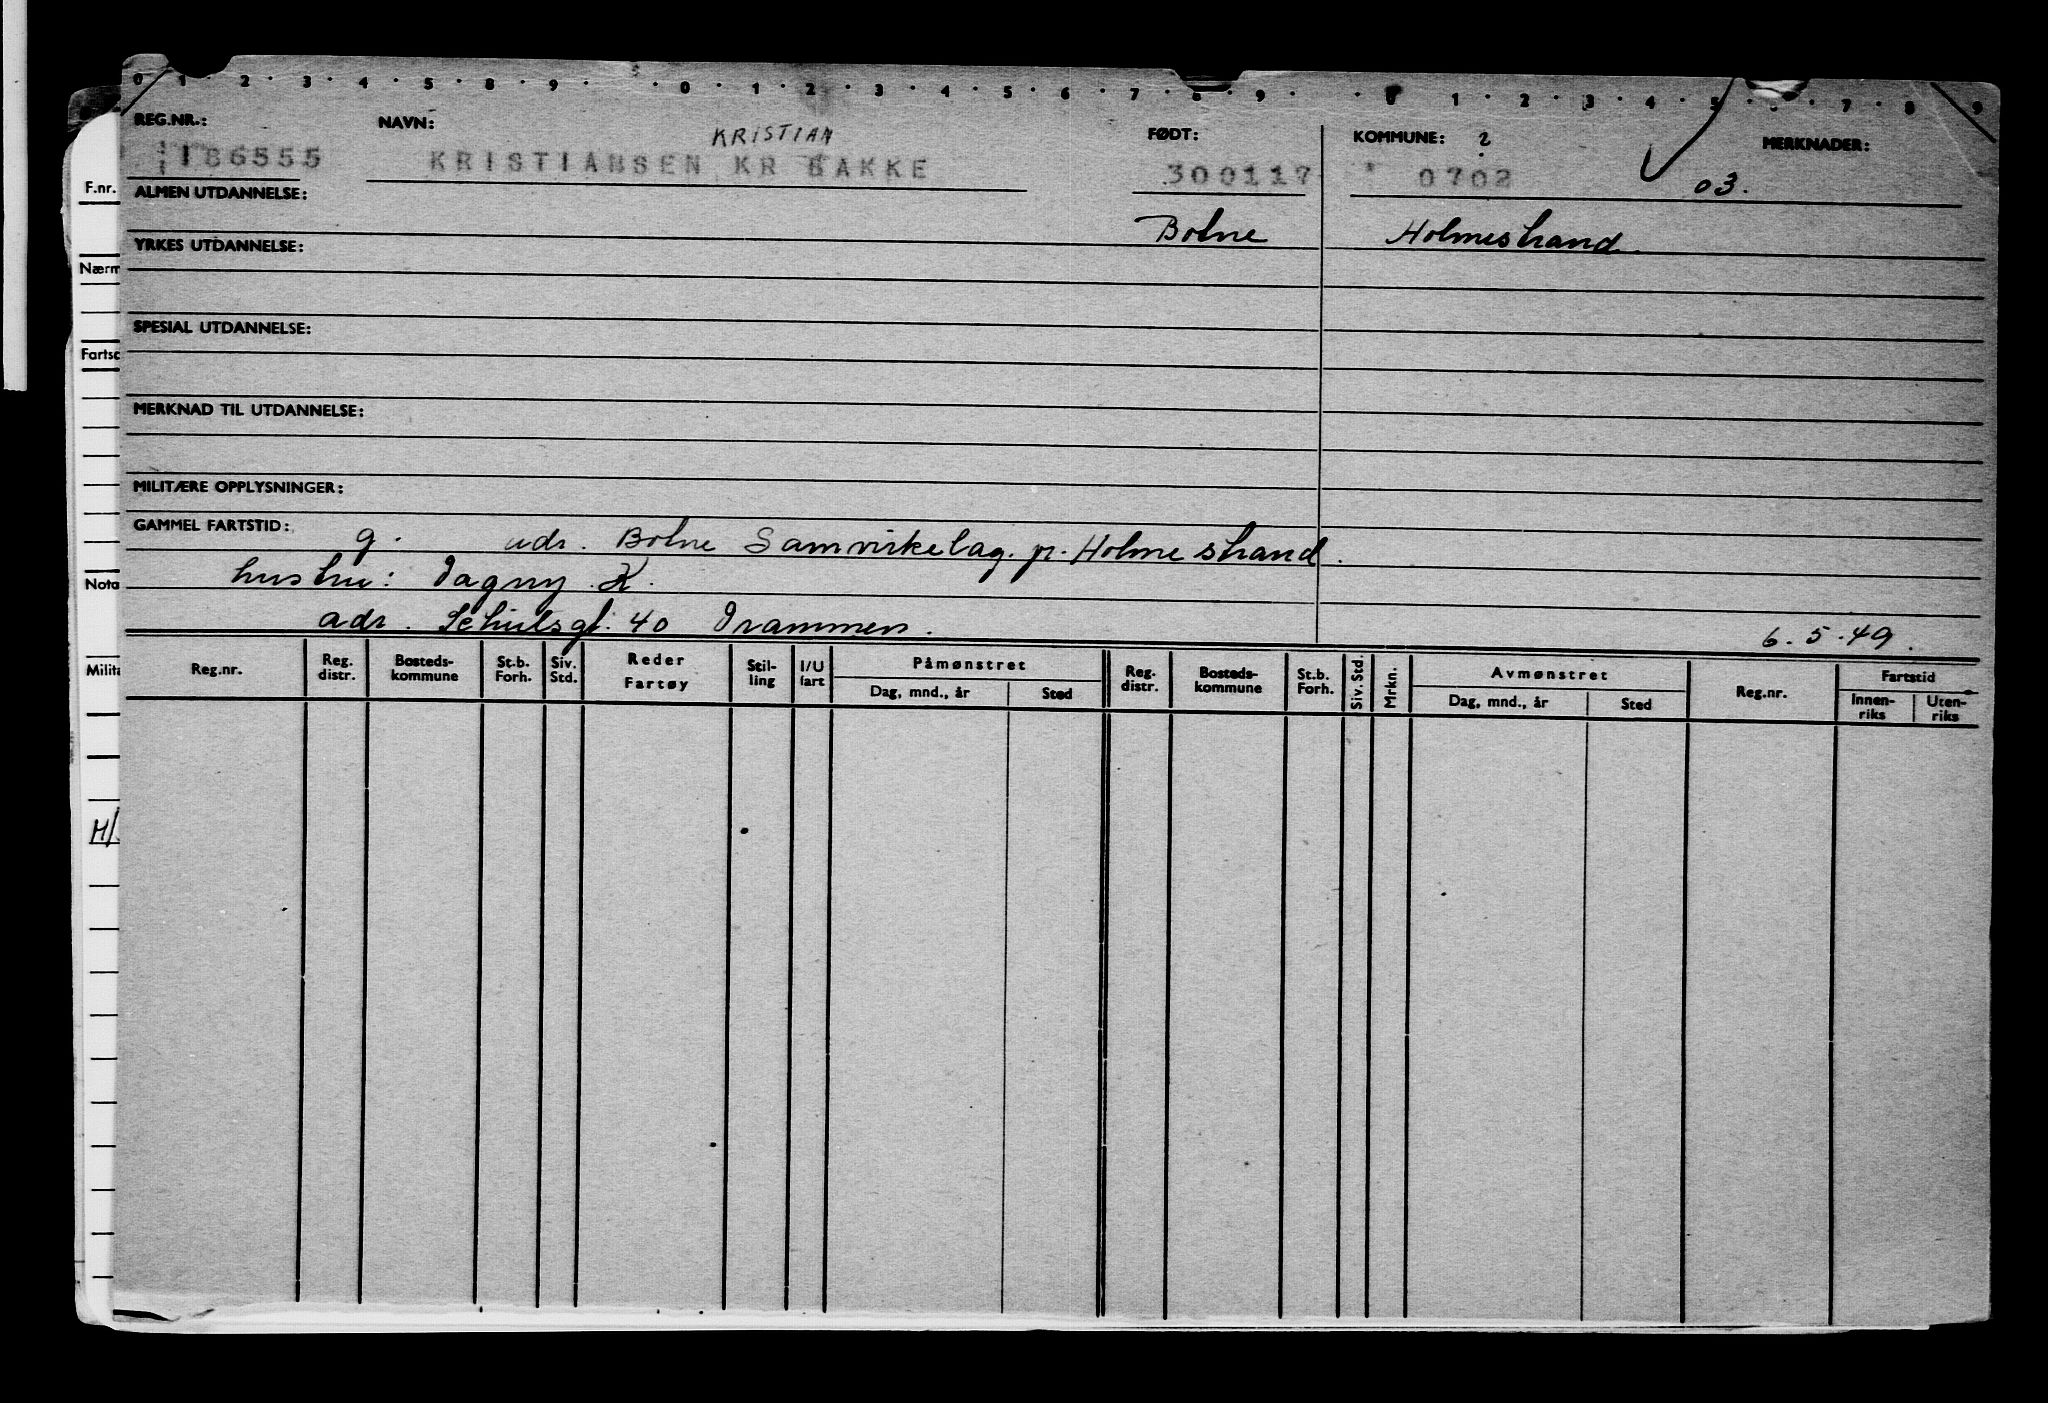 0 · 1 · 2 · 3 · 4 · 5 · 8 · 9 · · 0 · 1 · 2 · 3 · 4 · 5 · 6 · 7 · 8 · 9 · · 1 · 2 · 3 · 4 · 5 · 7 · 8 · 9
REG.NR.: NAVN: KRISTIAN FØDT: KOMMUNE: 2 MERKNADER:
186555 KRISTIANSEN KR BAKKE 300117 0702 03.
F.nr. ALMEN UTDANNELSE:
Botne Holmestrand
YRKES UTDANNELSE:
Nærm
SPESIAL UTDANNELSE:
Fartsc
MERKNAD TIL UTDANNELSE:
MILITÆRE OPPLYSNINGER:
GAMMEL FARTSTID:
g. adr. Botne Samvirkelag. p. Holmestrand.
Nota hustru: Dagny K.
adr. Schultsgt. 40 Drammen. 6.5.49.
Milita Reg.nr. Reg. distr. Bosteds-kommune St.b. Forh. Siv. Std. Reder Fartøy Stil-ling I/U fart Påmønstret Dag, mnd., år Sted Reg. distr. Bosteds-kommune St.b. Forh. Siv. Std. Mrkn. Avmønstret Dag, mnd., år Sted Reg.nr. Fartstid Innen-riks Uten-riks
H/